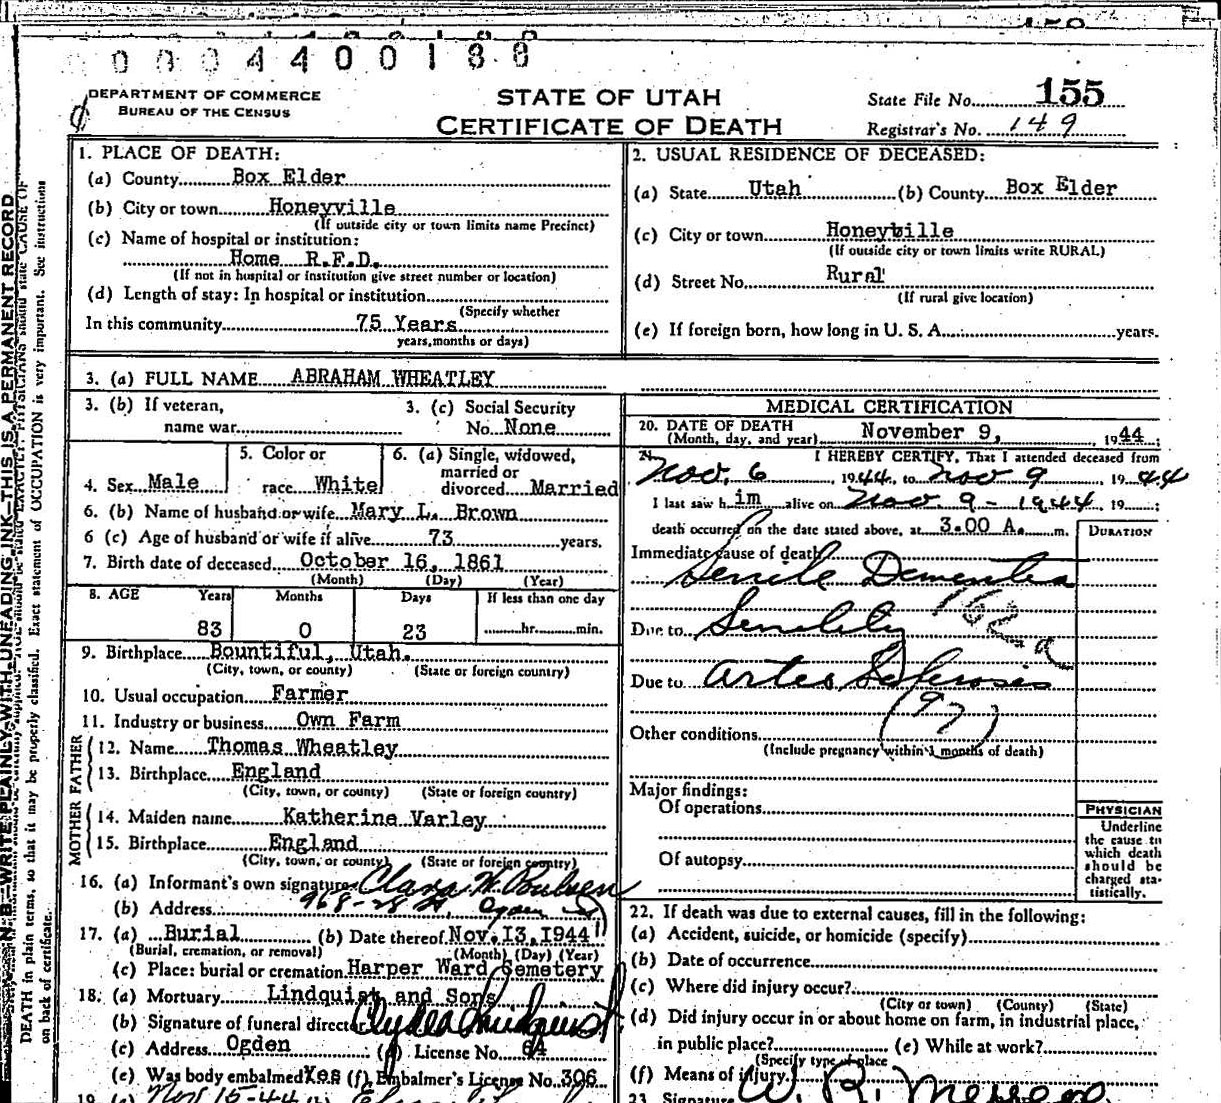 0004400188
DEPARTMENT OF COMMERCE
BUREAU OF THE CENSUS
STATE OF UTAH
CERTIFICATE OF DEATH
State File No. 155
Registrar's No. 149
N.B.—WRITE PLAINLY, WITH UNFADING INK—THIS IS A PERMANENT RECORD
DEATH in plain terms, so that it may be properly classified. Exact statement of OCCUPATION is very important. See instructions
on back of certificate.
1. PLACE OF DEATH:
(a) County Box Elder
(b) City or town Honeyville
(If outside city or town limits name Precinct)
(c) Name of hospital or institution:
Home R.F.D.
(If not in hospital or institution give street number or location)
(d) Length of stay: In hospital or institution
(Specify whether
In this community 75 Years
years, months or days)
2. USUAL RESIDENCE OF DECEASED:
(a) State Utah (b) County Box Elder
(c) City or town Honeyville
(If outside city or town limits write RURAL)
(d) Street No. Rural
(If rural give location)
(e) If foreign born, how long in U. S. A. years.
3. (a) FULL NAME ABRAHAM WHEATLEY
3. (b) If veteran,
name war
3. (c) Social Security
No. None
4. Sex Male
5. Color or
race White
6. (a) Single, widowed,
married or
divorced Married
6. (b) Name of husband or wife Mary L. Brown
6 (c) Age of husband or wife if alive 73 years.
7. Birth date of deceased October 16, 1861
(Month) (Day) (Year)
8. AGE Years Months Days If less than one day
83 0 23 hr. min.
9. Birthplace Bountiful, Utah.
(City, town, or county) (State or foreign country)
10. Usual occupation Farmer
11. Industry or business Own Farm
FATHER
12. Name Thomas Wheatley
13. Birthplace England
(City, town, or county) (State or foreign country)
MOTHER
14. Maiden name Katherine Varley
15. Birthplace England
(City, town, or county) (State or foreign country)
16. (a) Informant's own signature Clara W. Poulsen
(b) Address 968-28 St, Ogden
17. (a) Burial (b) Date thereof Nov. 13, 1944
(Burial, cremation, or removal) (Month) (Day) (Year)
(c) Place: burial or cremation Harper Ward Semetery
18. (a) Mortuary Lindquist and Sons
(b) Signature of funeral director Clyde Lindquist
(c) Address Ogden License No. 64
(e) Was body embalmed Yes (f) Embalmer's License No. 306
19. (a) Nov 15-44
MEDICAL CERTIFICATION
20. DATE OF DEATH
(Month, day, and year) November 9, 1944;
21. I HEREBY CERTIFY, That I attended deceased from
Nov. 6, 1944, to Nov 9 1944
I last saw him alive on Nov. 9-1944 19 ;
death occurred on the date stated above, at 3.00 A. m.
DURATION
Immediate cause of death
Senile Dementia
162a
Due to Senility
Due to Arterio Sclerosis
(97)
Other conditions
(Include pregnancy within 3 months of death)
Major findings:
Of operations
Of autopsy
PHYSICIAN
Underline
the cause to
which death
should be
charged sta-
tistically.
22. If death was due to external causes, fill in the following:
(a) Accident, suicide, or homicide (specify)
(b) Date of occurrence
(c) Where did injury occur?
(City or town) (County) (State)
(d) Did injury occur in or about home on farm, in industrial place,
in public place? (e) While at work?
(Specify type of place
(f) Means of injury.
23. Signature W. R.